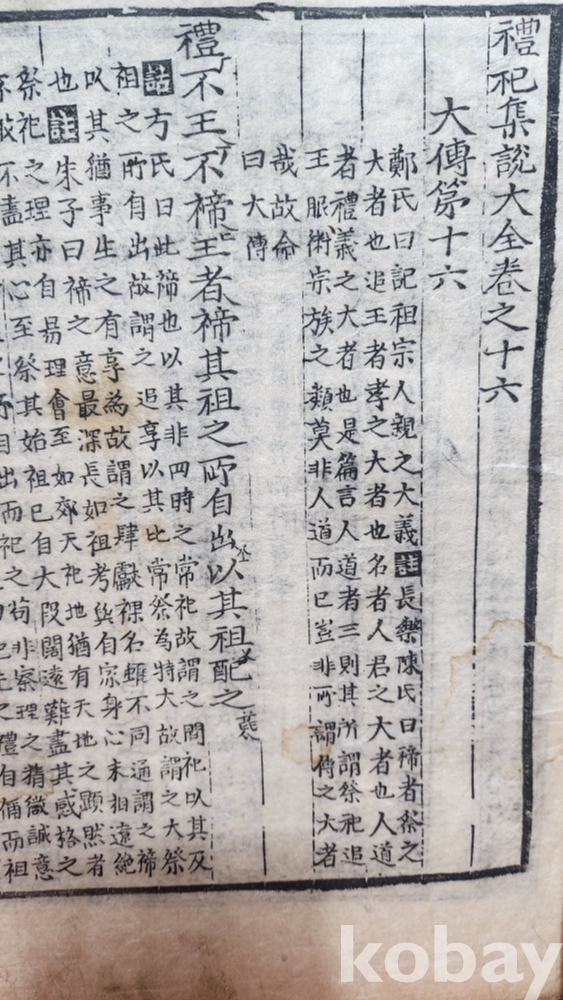 禮祀集說大全卷之十六
大傳第十六
鄭氏曰記祖宗人親之大義 註 長樂陳氏曰禘者祭之
大者也追王者孝之大者也名者人君之大者也人道
者禮義之大者也是篇言人道者三則其所謂祭祀追
王服術宗族之類莫非人道而已豈非所謂傳之大者
哉故命
曰大傳
禮不王不禘王者禘其祖之所自出以其祖配之
詁 方氏曰此禘也以其非四時之常祀故謂之間祀以其及
祖之所自出故謂之追享以其比常祭為特大故謂之大祭
以其猶事生之有享為故謂之肆獻祼名雖不同通謂之禘
也 註 朱子曰禘之意最深長如祖考與自家身心未相遼絕
祭祀之理亦自易理會至如郊天祀地猶有天地之顯然者
不敢不盡其心至祭其始祖已自大段闊遠難盡其感格之
自出而祀之苟非察理之精微誠意
kobay